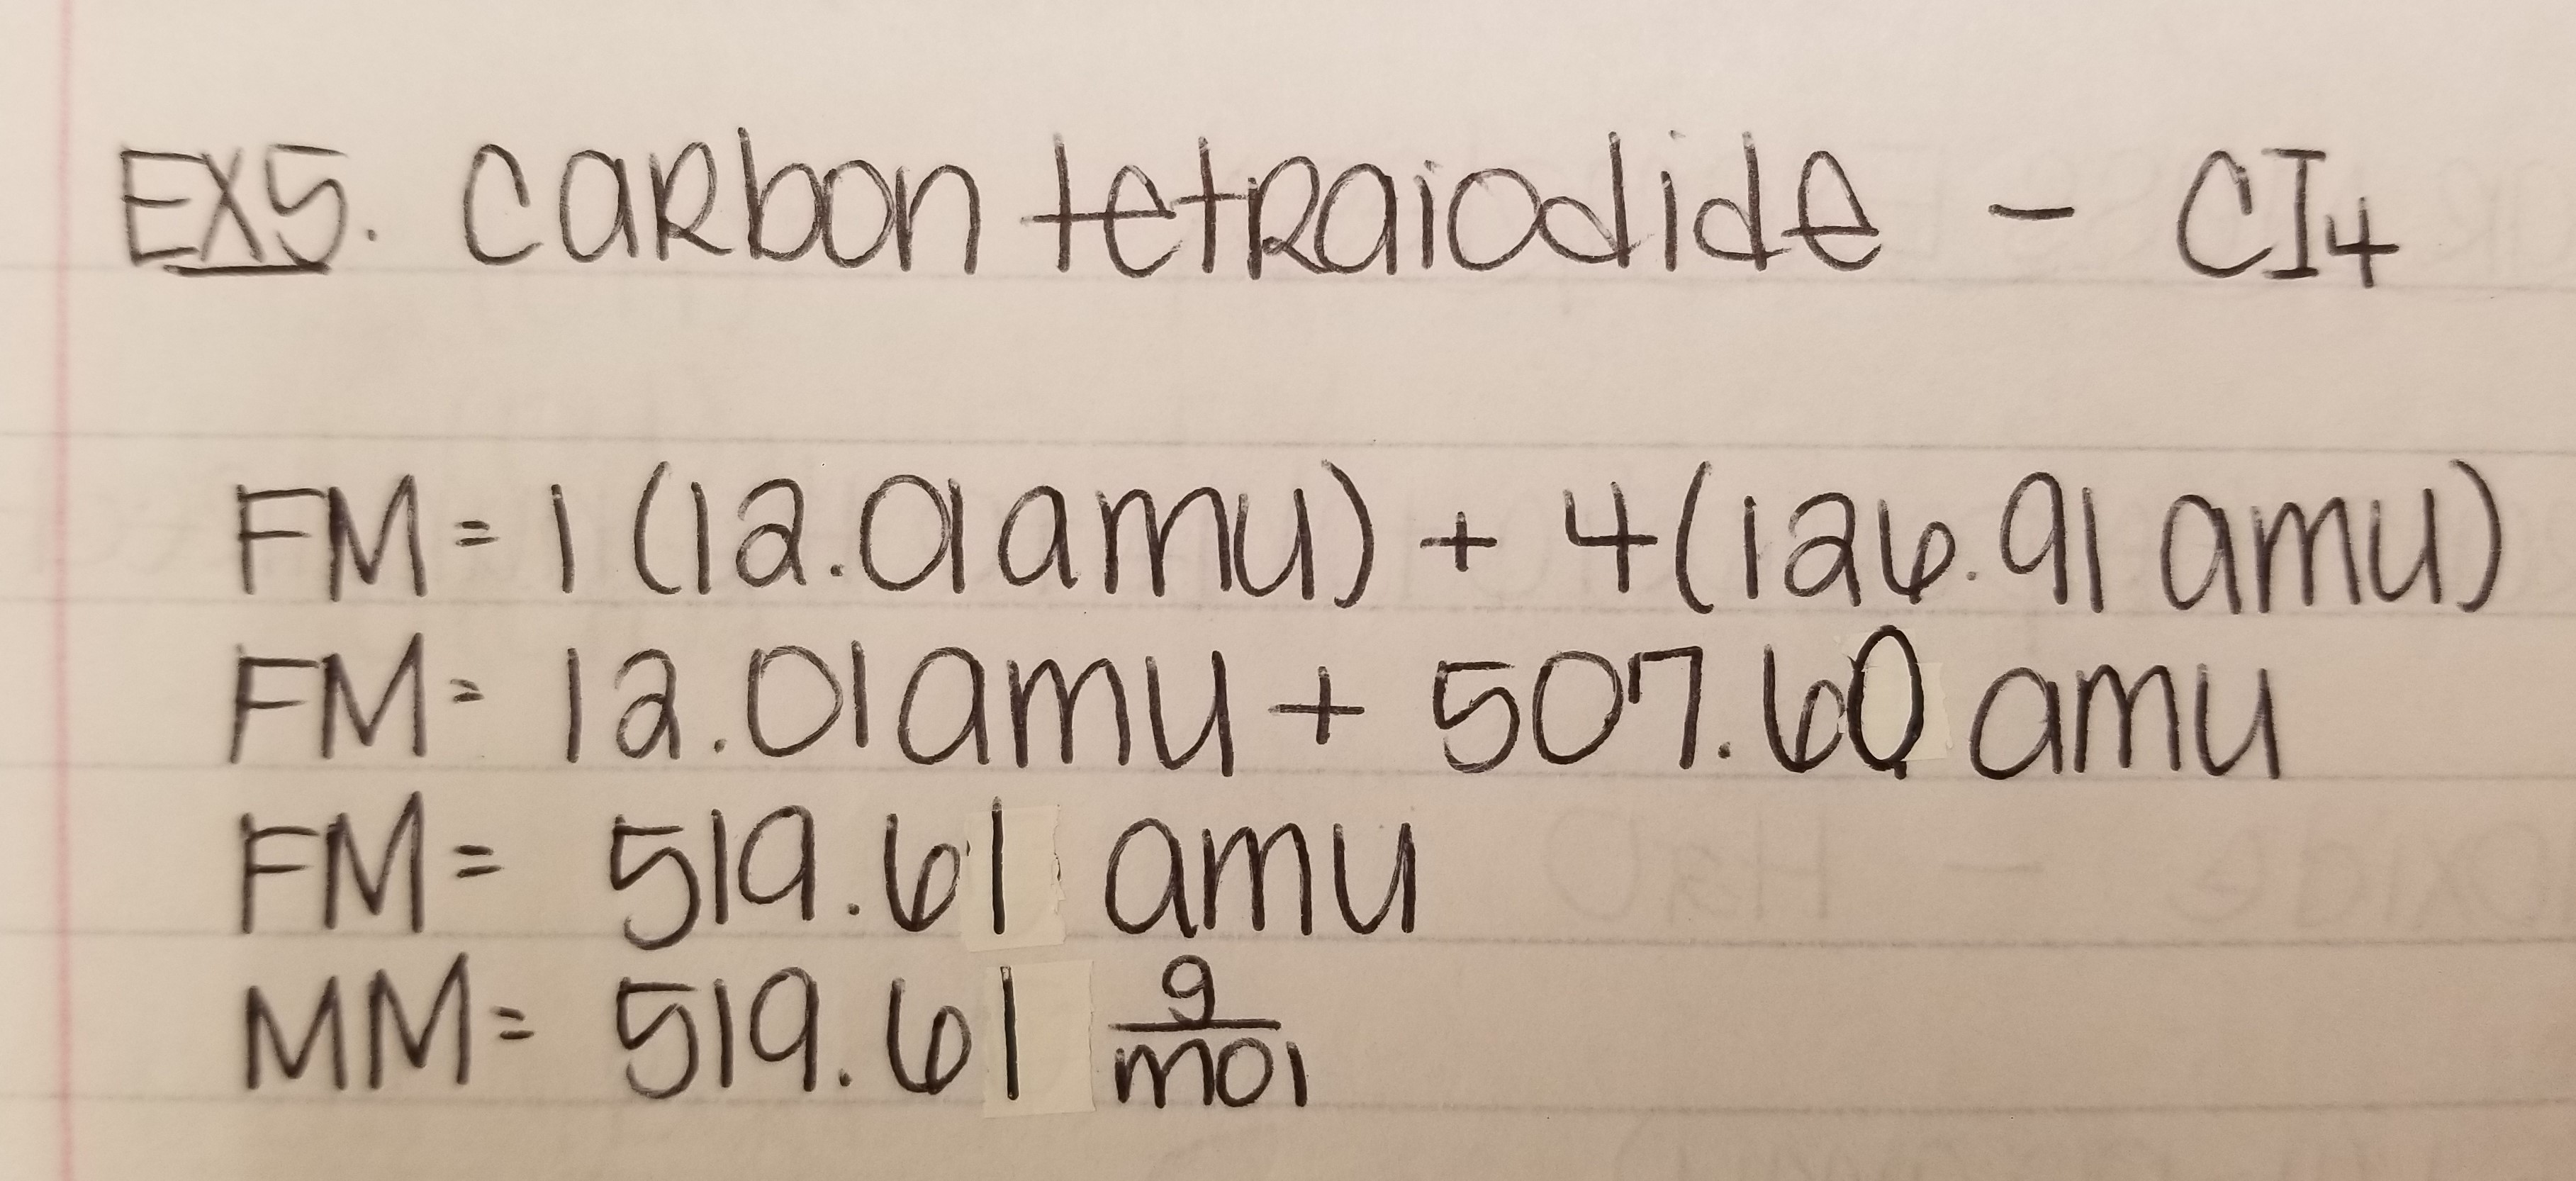 EX5. carbon tetraiodide - CI₄
FM = 1 (12.01 amu) + 4(126.91 amu)
FM = 12.01 amu + 507.60 amu
FM = 519.61 amu
MM = 519.61 g/mol